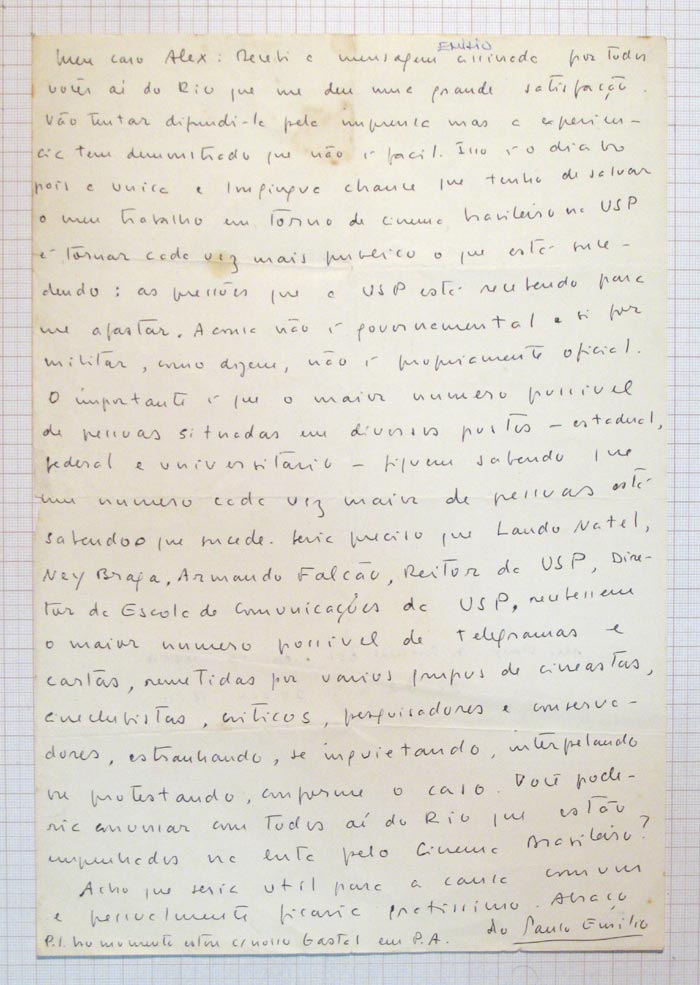 EMILIO
Meu caro Alex: Recebi a mensagem assinada por todos
vocês aí do Rio que me deu uma grande satisfação.
Vão tentar difundi-la pela imprensa mas a experiên-
cia tem demonstrado que não é facil. Isso é o diabo
pois a unica e longinqua chance que tenho de salvar
o meu trabalho em torno de cinema brasileiro na USP
é tornar cada vez mais publico o que está suce-
dendo: as pressões que a USP está recebendo para
me afastar. A coisa não é governamental e si for
militar, como dizem, não é propriamente oficial.
O importante é que o maior numero possivel
de pessoas situadas em diversos postos – estadual,
federal e universitário – fiquem sabendo que
um numero cada vez maior de pessoas está
sabendo o que sucede. Seria preciso que Laudo Natel,
Ney Braga, Armando Falcão, Reitor da USP, Dire-
tor da Escola de Comunicações da USP, recebessem
o maior numero possivel de telegramas e
cartas, remetidas por varios grupos de cineastas,
cineclubistas, criticos, pesquisadores e conserva-
dores, estranhando, se inquietando, interpelando
ou protestando, conforme o caso. Você pode-
ria conversar com todos aí do Rio que estão
empenhados na luta pelo Cinema Brasileiro?
Acho que seria util para a causa comum
e pessoalmente ficaria gratissimo. Abraço
do Paulo Emilio
P.S. No momento estou c/ nosso Gastal em P.A.